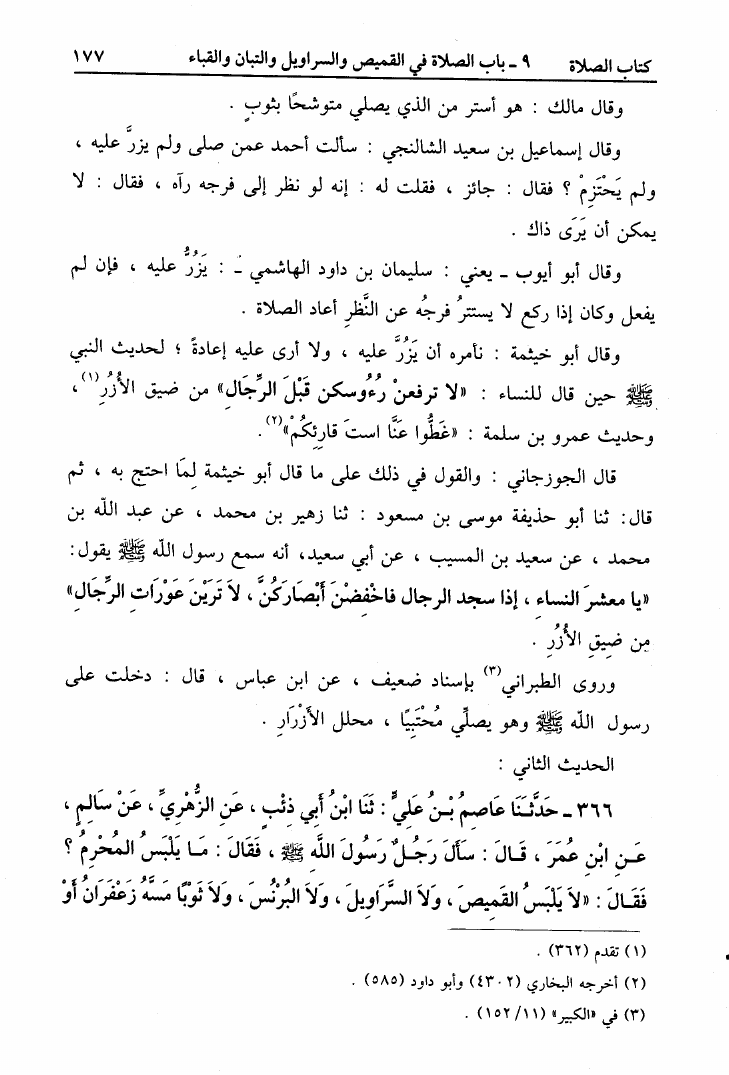 كتاب الصلاة ٩ ـ باب الصلاة في القميص والسراويل والتبان والقباء ١٧٧
وقال مالك : هو أستر من الذي يصلي متوشحًا بثوبٍ .
وقال إسماعيل بن سعيد الشالنجي : سألت أحمد عمن صلى ولم يزرَّ عليه ،
ولم يَحْتَزِمْ ؟ فقال : جائز ، فقلت له : إنه لو نظر إلى فرجه رآه ، فقال : لا
يمكن أن يَرَى ذاك .
وقال أبو أيوب ـ يعني : سليمان بن داود الهاشمي ـ : يَزُرُّ عليه ، فإن لم
يفعل وكان إذا ركع لا يستترُ فرجُه عن النَّظرِ أعاد الصلاة .
وقال أبو خيثمة : نأمره أن يَزُرَّ عليه ، ولا أرى عليه إعادةً ؛ لحديث النبي
ﷺ حين قال للنساء : «لا ترفعنْ رُءُوسكن قَبْلَ الرِّجَال» من ضيق الأُزُرِ(١)،
وحديث عمرو بن سلمة : «غَطُّوا عَنَّا استَ قارِئِكُمْ»(٢).
قال الجوزجاني : والقول في ذلك على ما قال أبو خيثمة لِمَا احتج به ، ثم
قال: ثنا أبو حذيفة موسى بن مسعود : ثنا زهير بن محمد ، عن عبد الله بن
محمد ، عن سعيد بن المسيب ، عن أبي سعيد، أنه سمع رسول الله ﷺ يقول:
«يا معشرَ النساءِ ، إذا سجد الرجال فاخْفِضْنَ أَبْصَارَكُنَّ ، لاَ تَرَيْنَ عَوْرَاتِ الرِّجَالِ»
مِن ضِيقِ الأُزُرِ .
وروى الطبراني(٣) بإسناد ضعيف ، عن ابن عباس ، قال : دخلت على
رسول الله ﷺ وهو يصلِّي مُحْتَبِيًا ، محلل الأَزْرَارِ .
الحديث الثاني :
٣٦٦ ـ حَدَّثَنَا عَاصِمُ بْنُ عَلِيٍّ : ثَنَا ابْنُ أَبِي ذِئْبٍ ، عَنِ الزُّهْرِيِّ ، عَنْ سَالِمٍ ،
عَنِ ابْنِ عُمَرَ ، قَالَ : سَأَلَ رَجُلٌ رَسُولَ اللَّهِ ﷺ ، فَقَالَ : مَا يَلْبَسُ المُحْرِمُ ؟
فَقَالَ : «لاَ يَلْبَسُ القَمِيصَ ، وَلاَ السَّرَاوِيلَ ، وَلاَ البُرْنُسَ ، وَلاَ ثَوْبًا مَسَّهُ زَعْفَرَانٌ أَوْ
(١) تقدم (٣٦٢) .
(٢) أخرجه البخاري (٤٣٠٢) وأبو داود (٥٨٥) .
(٣) في «الكبير» (١١/ ١٥٢) .